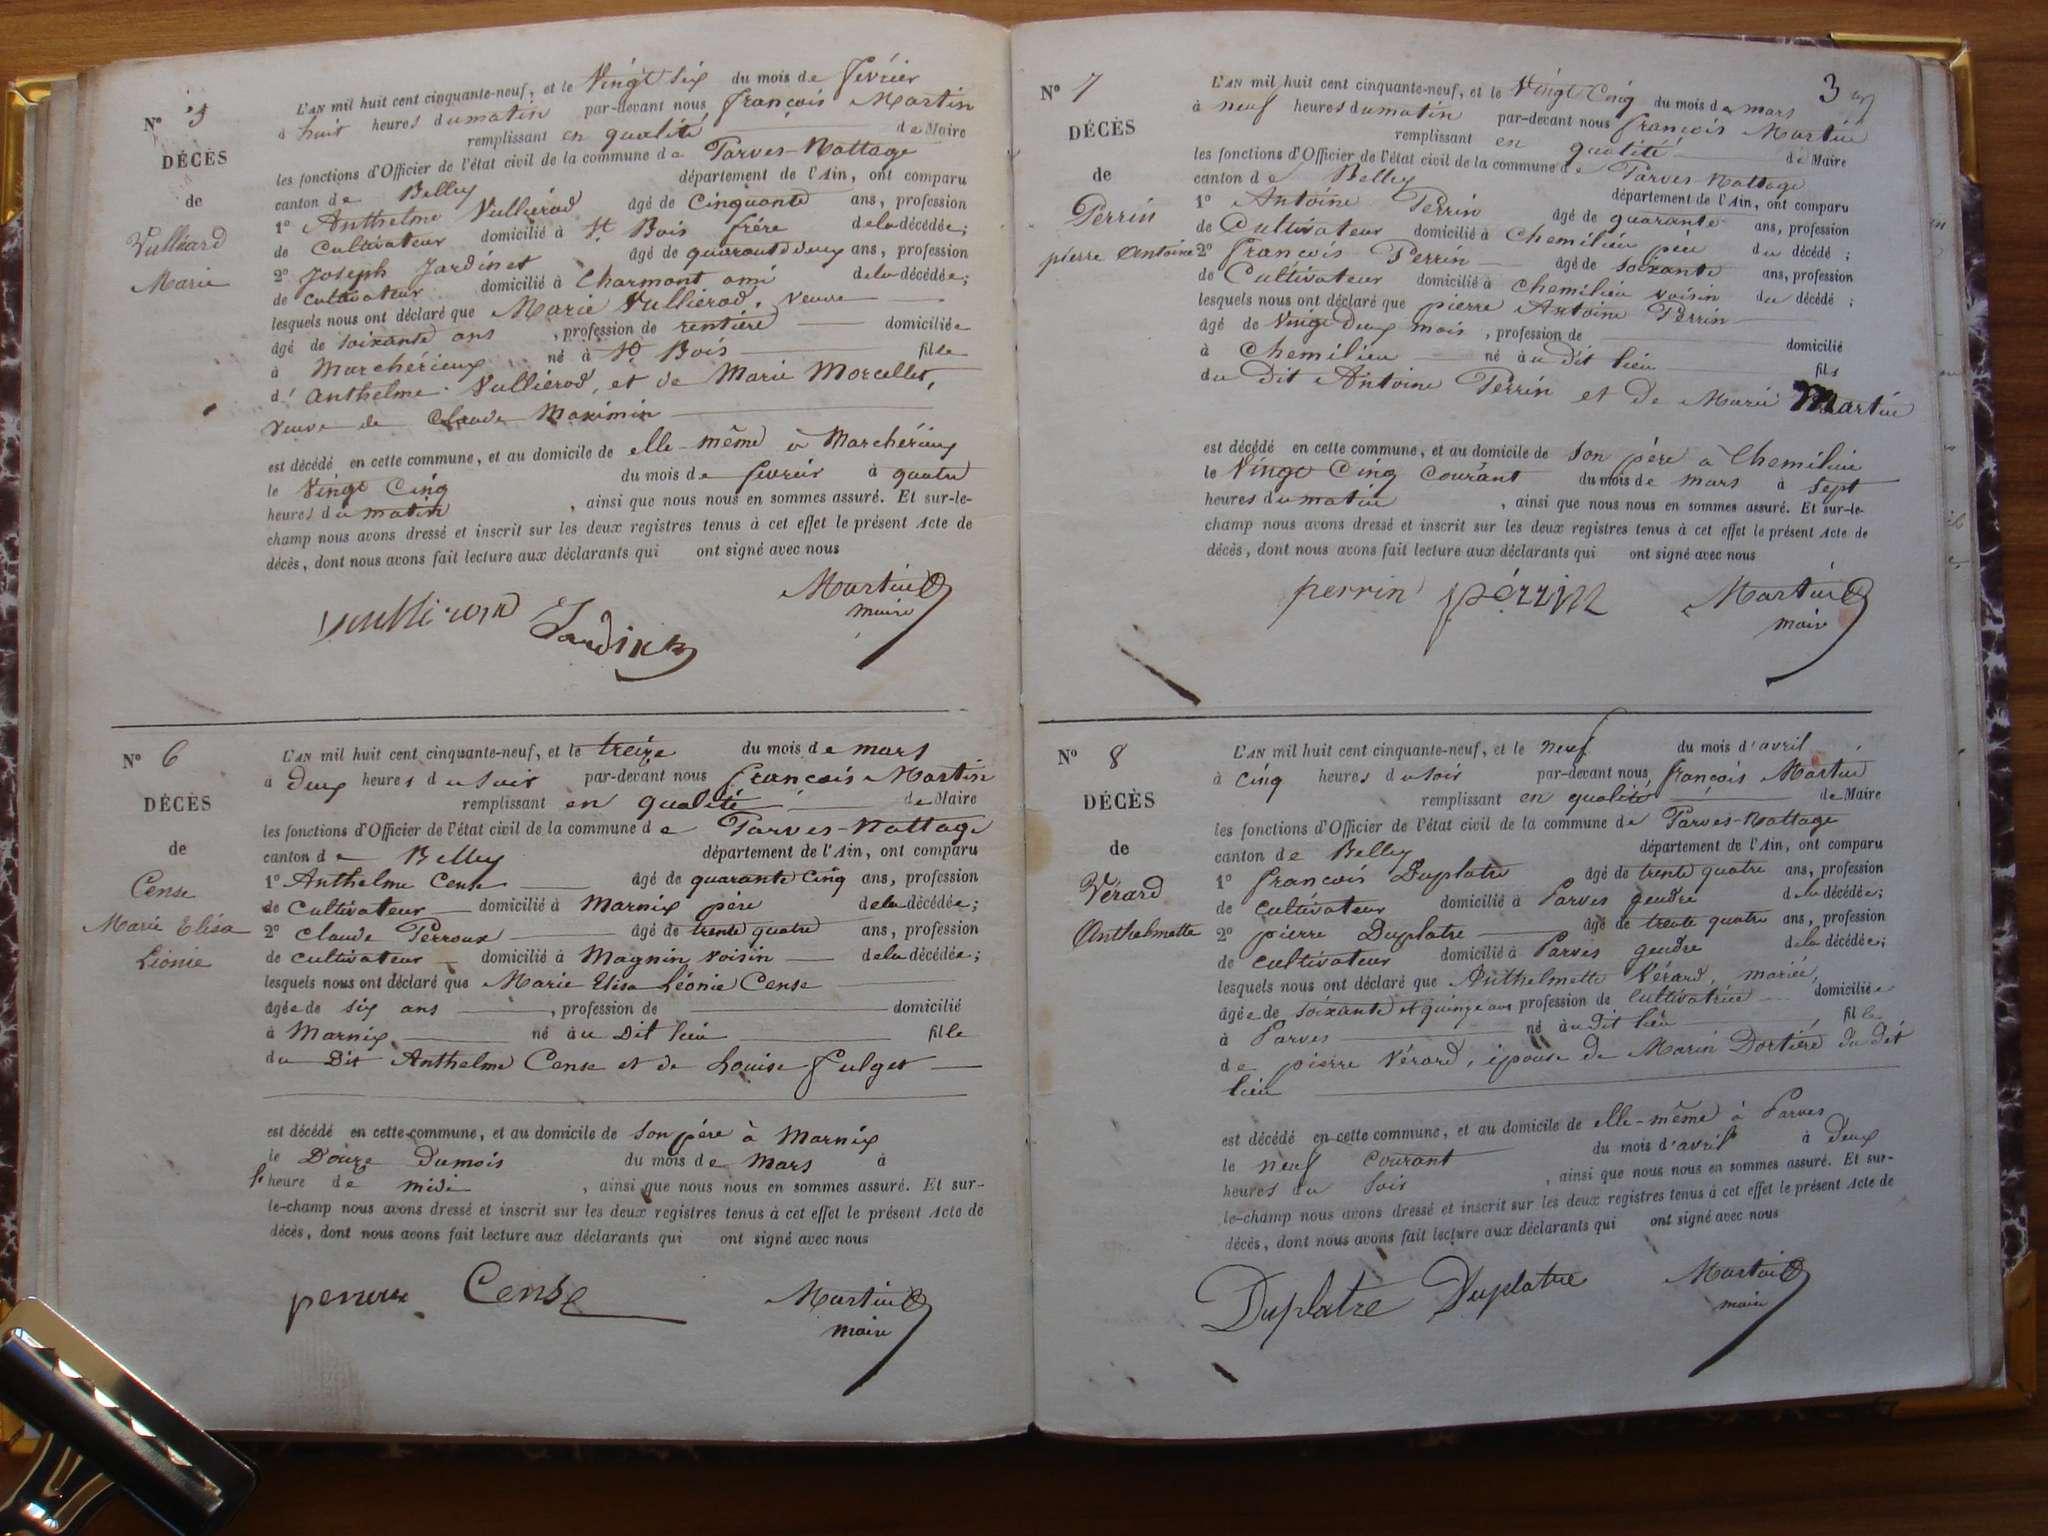 N° 5
DÉCÈS
de
Vulliard
Marie
L'AN mil huit cent cinquante-neuf, et le Vingt six du mois de février
à huit heures du matin par-devant nous françois Martin
remplissant en qualité de Maire
les fonctions d'Officier de l'état civil de la commune de Parves-Nattage
canton de Belley département de l'Ain, ont comparu
1° Anthelme Vulliérod âgé de Cinquante ans, profession
de Cultivateur domicilié à St Bois frère de la décédée;
2° Joseph Jardinet âgé de quarante deux ans, profession
de Cultivateur domicilié à Charmont ami de la décédée;
lesquels nous ont déclaré que Marie Vulliérod, veuve
âgé de soixante ans, profession de rentière domiciliée
à Marchérieux né à St Bois fille
d'Anthelme Vulliérod, et de Marie Morcellet,
veuve de Claude Maximin
est décédé en cette commune, et au domicile de elle-même à Marchérieux
le Vingt Cinq du mois de fevreir à quatre
heures du matin, ainsi que nous nous en sommes assuré. Et sur-le-
champ nous avons dressé et inscrit sur les deux registres tenus à cet effet le présent Acte de
décès, dont nous avons fait lecture aux déclarants qui ont signé avec nous
Jardinet Martin
maire
N° 6
DÉCÈS
de
Cense
Marie Elisa
Léonie
L'AN mil huit cent cinquante-neuf, et le treize du mois de mars
à deux heures du soir par-devant nous françois Martin
remplissant en qualité de Maire
les fonctions d'Officier de l'état civil de la commune de Parves-Nattage
canton de Belley département de l'Ain, ont comparu
1° Anthelme Cense âgé de quarante Cinq ans, profession
de Cultivateur domicilié à Marnix père de la décédée;
2° Claude Perroux âgé de trente quatre ans, profession
de cultivateur domicilié à Magnin voisin de la décédée;
lesquels nous ont déclaré que Marie Elisa Léonie Cense
âgée de six ans, profession de domicilié
à Marnix né au Dit lieu fille
du Dit Anthelme Cense et de Louise Julget
est décédé en cette commune, et au domicile de son père à Marnix
le Douze du mois du mois de Mars à
l'heure de midi, ainsi que nous nous en sommes assuré. Et sur-
le-champ nous avons dressé et inscrit sur les deux registres tenus à cet effet le présent Acte de
décès, dont nous avons fait lecture aux déclarants qui ont signé avec nous
perroux Cense Martin
maire
3
N° 7
DÉCÈS
de
Perrin
pierre Antoine
L'AN mil huit cent cinquante-neuf, et le Vingt Cinq du mois de mars
à neuf heures du matin par-devant nous françois Martin
remplissant en qualité de Maire
les fonctions d'Officier de l'état civil de la commune de Parves-Nattage
canton de Belley département de l'Ain, ont comparu
1° Antoine Perrin âgé de quarante ans, profession
de Cultivateur domicilié à Chemilieu père du décédé;
2° françois Perrin âgé de soixante ans, profession
de Cultivateur domicilié à Chemilieu voisin du décédé;
lesquels nous ont déclaré que pierre Antoine Perrin
âgé de Vingt Deux mois, profession de domicilié
à Chemilieu né au dit lieu fils
du Dit Antoine Perrin et de Marie Martin
est décédé en cette commune, et au domicile de son père à Chemilieu
le Vingt Cinq courant du mois de mars à sept
heures du matin, ainsi que nous nous en sommes assuré. Et sur-le-
champ nous avons dressé et inscrit sur les deux registres tenus à cet effet le présent Acte de
décès, dont nous avons fait lecture aux déclarants qui ont signé avec nous
perrin perrin Martin
maire
N° 8
DÉCÈS
de
Vérard
Anthelmette
L'AN mil huit cent cinquante-neuf, et le neuf du mois d'avril
à cinq heures du soir par-devant nous, françois Martin
remplissant en qualité de Maire
les fonctions d'Officier de l'état civil de la commune de Parves-Nattage
canton de Belley département de l'Ain, ont comparu
1° françois Duplatre âgé de trente quatre ans, profession
de cultivateur domicilié à Parves gendre de la décédée;
2° pierre Duplatre âgé de trente quatre ans, profession
de cultivateur domicilié à Parves gendre de la décédée;
lesquels nous ont déclaré que Anthelmette Vérard, mariée,
âgée de soixante et quinze ans profession de Cultivatrice domiciliée
à Parves né au dit lieu, fille
de pierre Vérard, épouse de Marin Dortière du dit
lieu
est décédé en cette commune, et au domicile de elle-même à Parves
le neuf courant du mois d'avril à deux
heures du soir, ainsi que nous nous en sommes assuré. Et sur-
le-champ nous avons dressé et inscrit sur les deux registres tenus à cet effet le présent Acte de
décès, dont nous avons fait lecture aux déclarants qui ont signé avec nous
Duplatre Duplatre Martin
maire